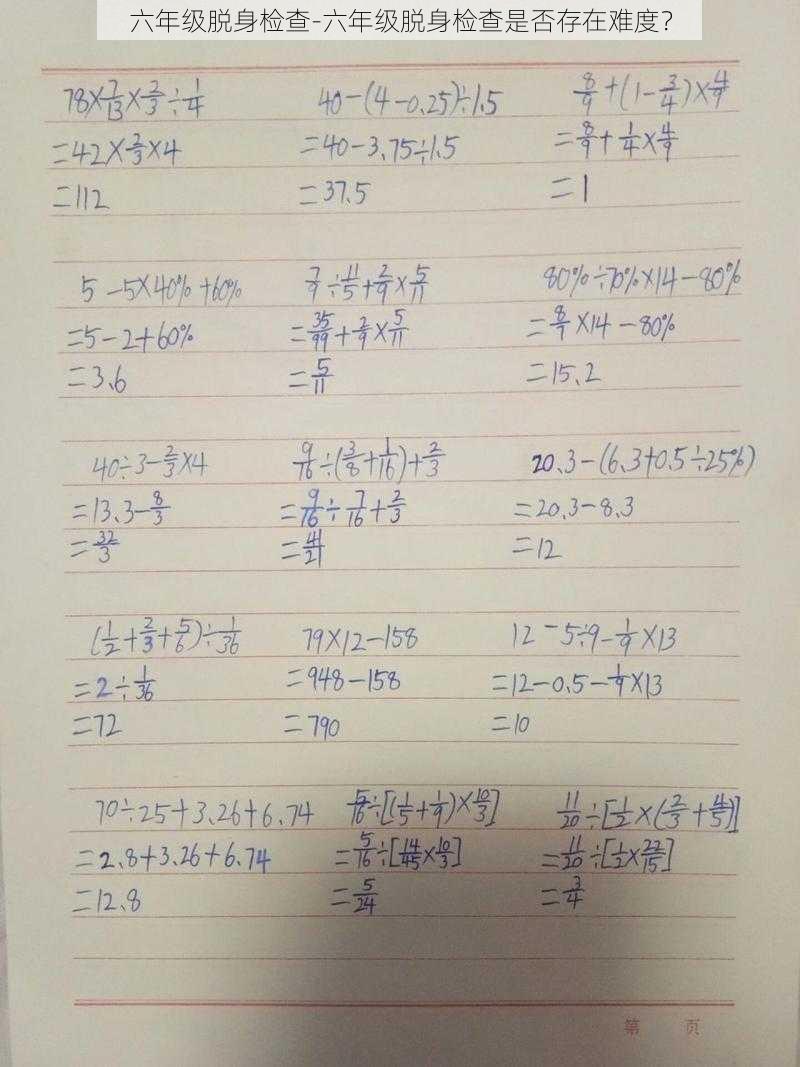 六年级脱身检查-六年级脱身检查是否存在难度？
78×7/13×2/3÷1/4
=42×2/3×4
=112
40-(4-0.25)÷1.5
=40-3.75÷1.5
=37.5
8/9+(1-3/4)×4/9
=8/9+1/4×4/9
=1
5-5×40%+60%
=5-2+60%
=3.6
7/9÷11/5+2/9×5/11
=35/99+2/9×5/11
=5/11
80%÷70%×14-80%
=8/7×14-80%
=15.2
40÷3-2/3×4
=13.3-8/3
=32/3
9/16÷(3/8+1/16)+2/3
=9/16÷7/16+2/3
=41/21
20.3-(6.3+0.5÷25%)
=20.3-8.3
=12
(1/2+2/3+5/6)÷1/36
=2÷1/36
=72
79×12-158
=948-158
=790
12-5÷9-1/9×13
=12-0.5-1/9×13
=10
70÷25+3.26+6.74
=2.8+3.26+6.74
=12.8
5/16÷[(1/5+1/9)×10/3]
=5/16÷[14/45×10/3]
=5/24
11/20÷[1/2×(2/3+4/5)]
=11/20÷[1/2×22/15]
=3/4
第 页